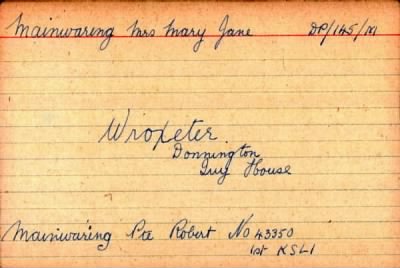 Mainwaring Mrs Mary Jane DP/145/M
Wroxeter.
Donnington
Ivy House
Mainwaring Pte Robert No 43350
1st KSLI